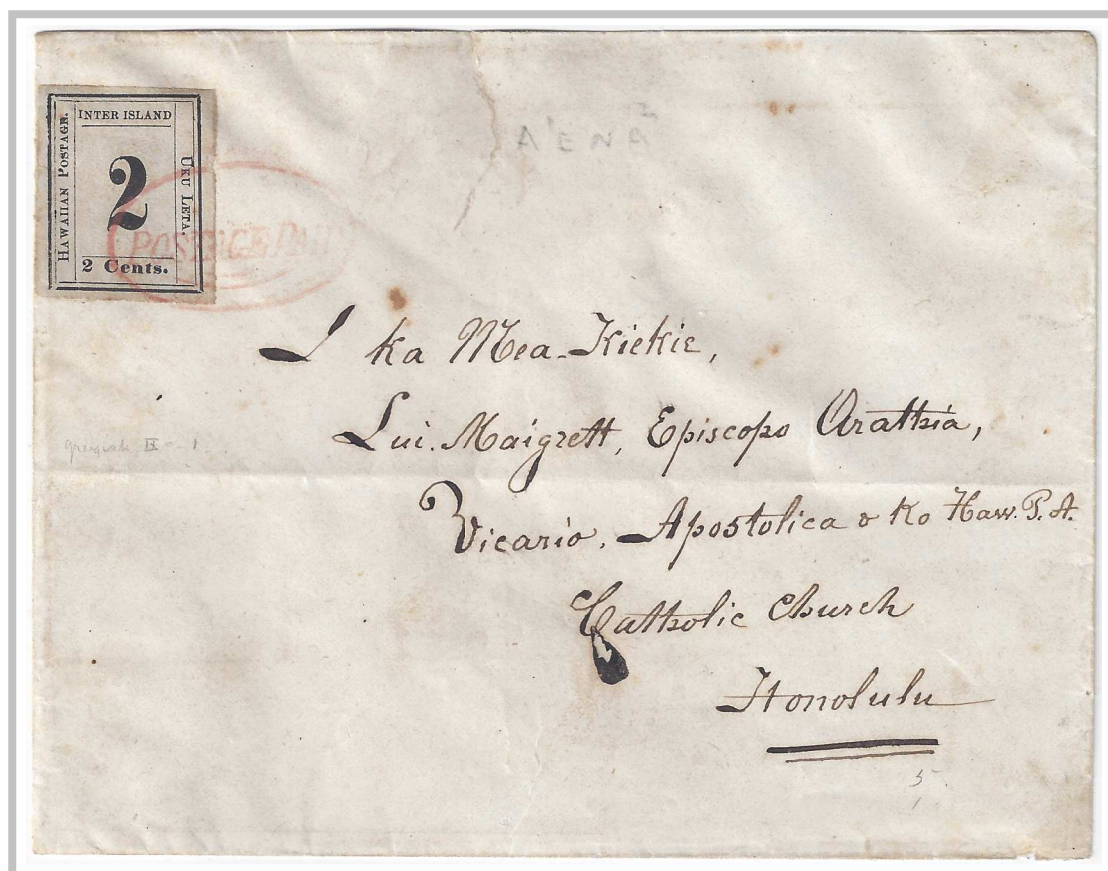 INTER ISLAND
HAWAIIAN POSTAGE.
2
UKU LETA.
2 Cents.
POSTAGE PAID
A'ENA
I ka Mea-Kiekie,
Lui. Maigrett, Episcopo Arathia,
Vicario. Apostolica o Ko Haw. P. A.
Catholic Church
Honolulu
5
1